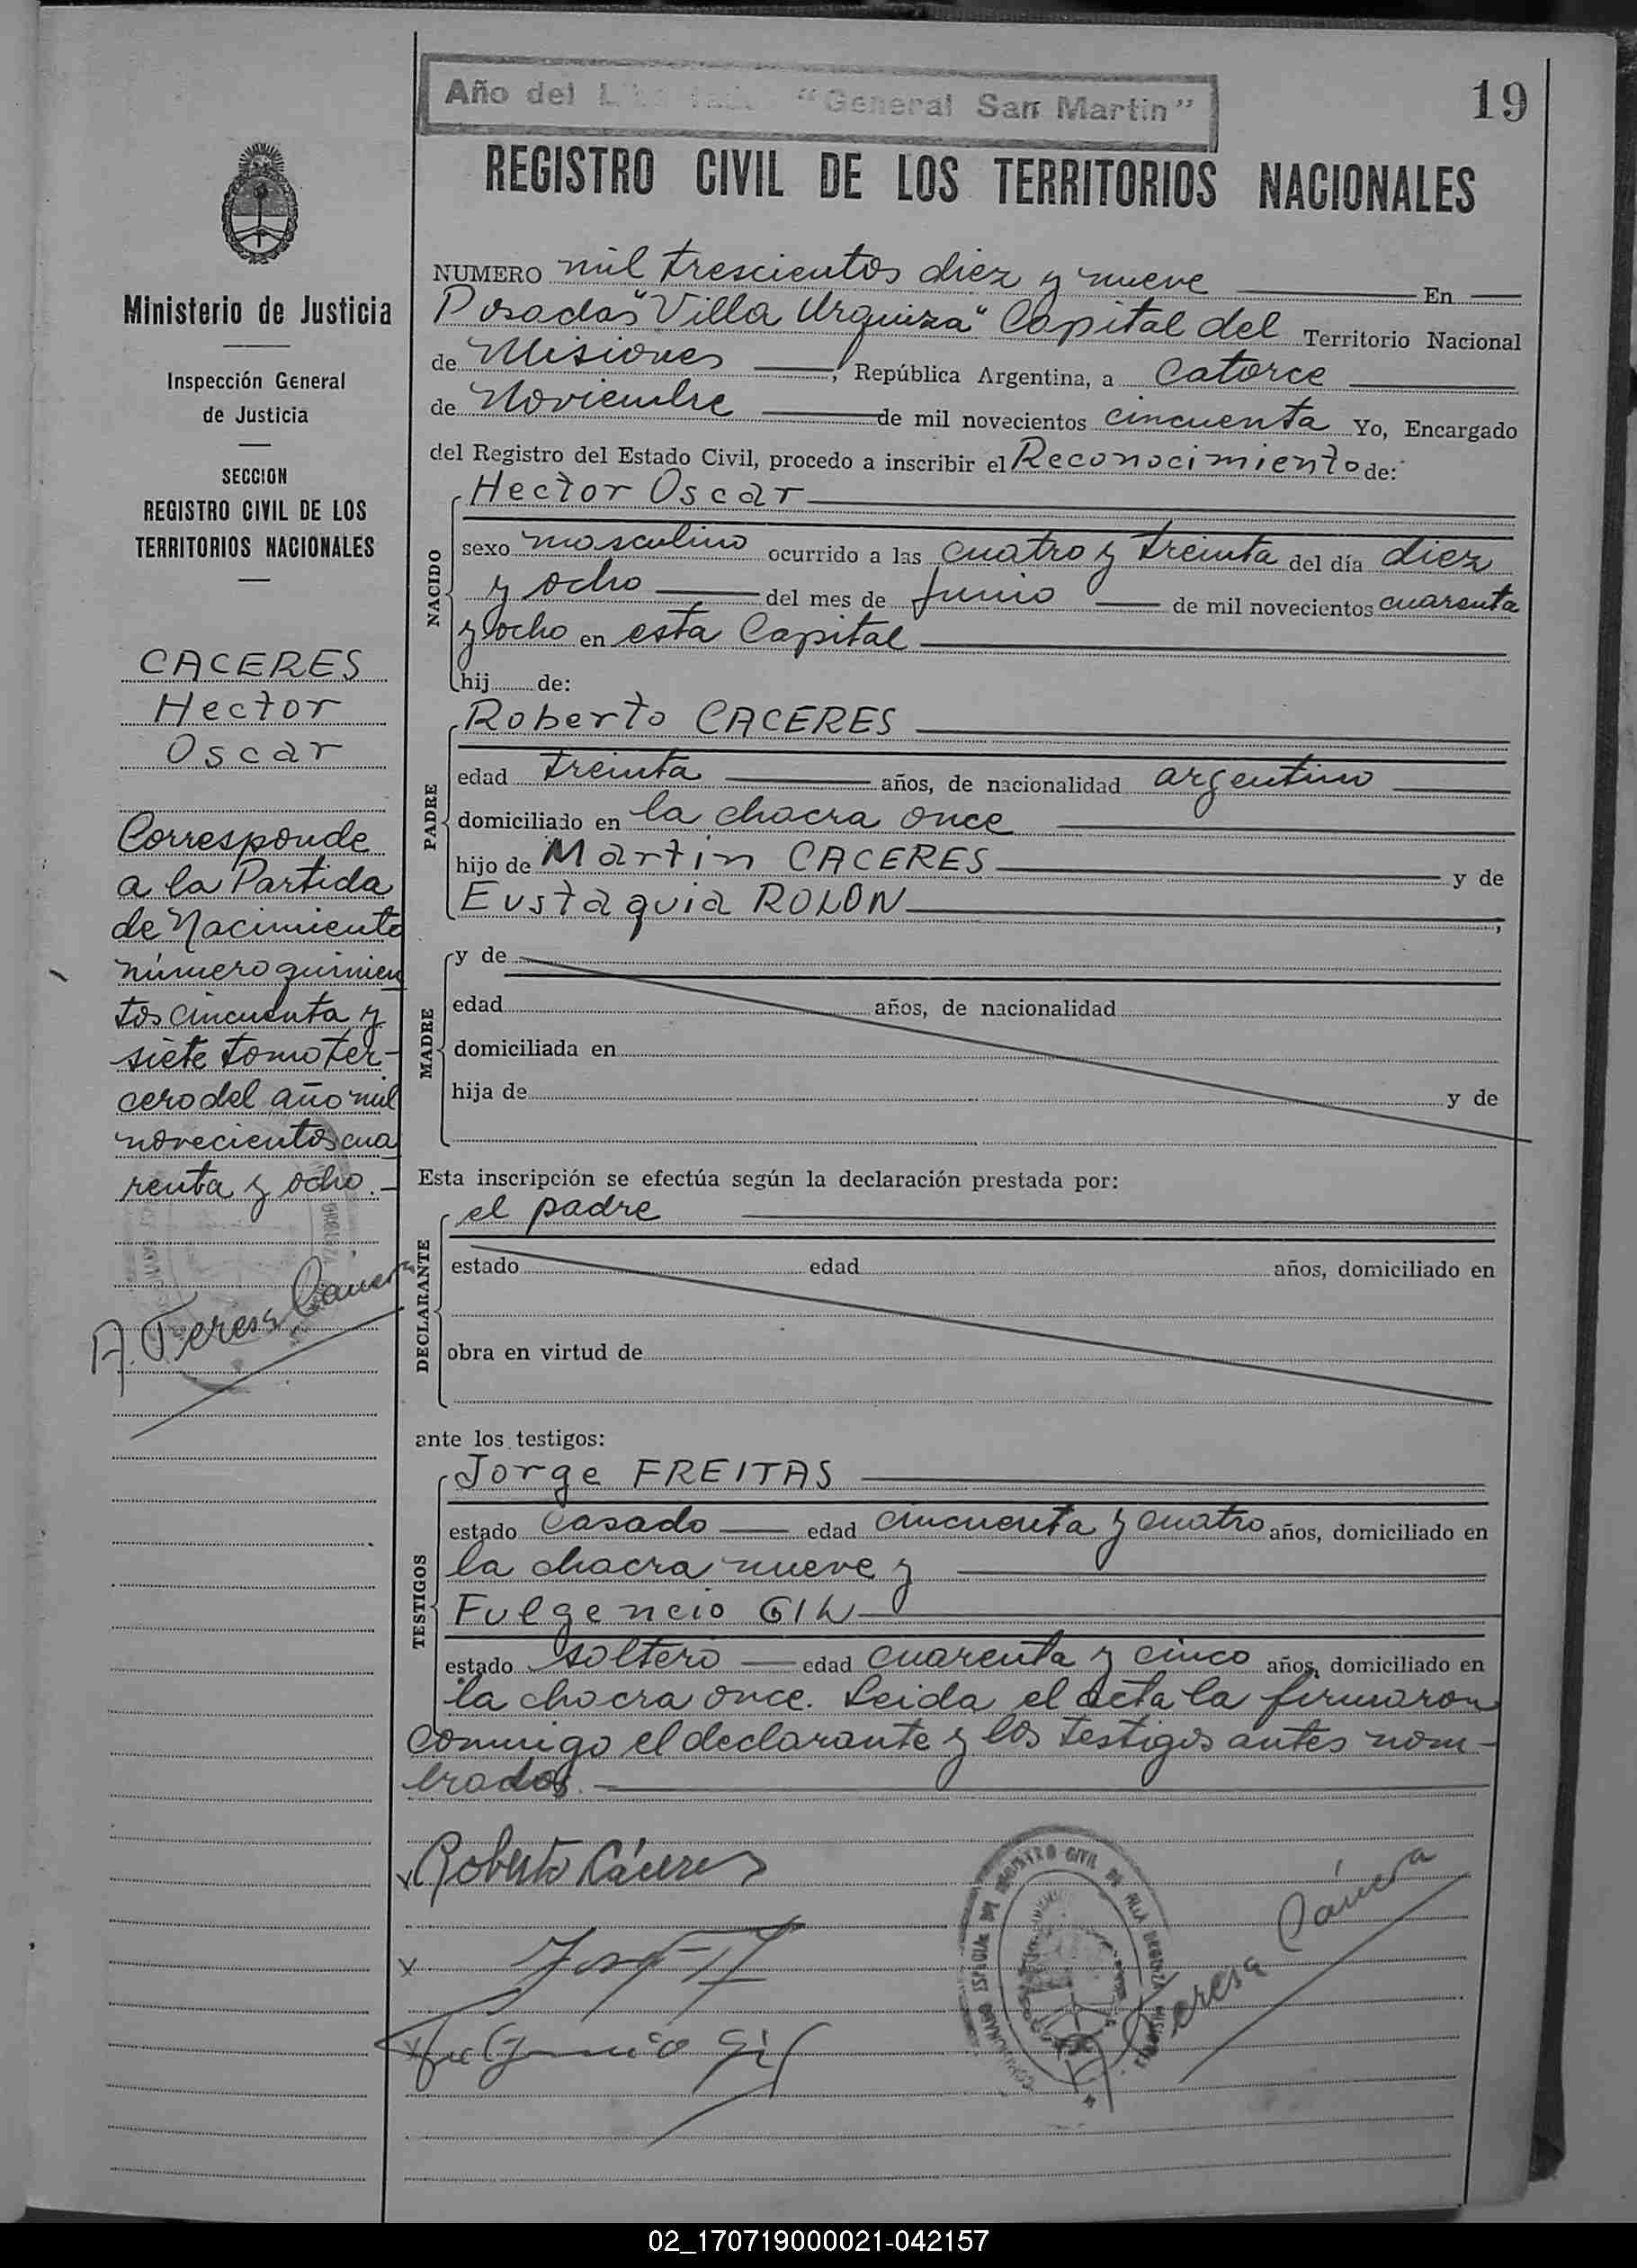 Año del "General San Martin"
19
REGISTRO CIVIL DE LOS TERRITORIOS NACIONALES
Ministerio de Justicia
Inspección General
de Justicia
SECCION
REGISTRO CIVIL DE LOS
TERRITORIOS NACIONALES
CACERES
Hector
Oscar
Corresponde
a la Partida
de Nacimiento
número quinien
tos cincuenta y
siete tomo ter-
cero del año mil
novecientos cua
renta y ocho.-
A. Teresa
NUMERO mil trescientos diez y nueve En
Posadas "Villa Urquiza" Capital del Territorio Nacional
de Misiones, República Argentina, a Catorce
de Noviembre de mil novecientos cincuenta Yo, Encargado
del Registro del Estado Civil, procedo a inscribir el Reconocimiento de:
NACIDO
Hector Oscar
sexo masculino ocurrido a las cuatro y treinta del día diez
y ocho del mes de Junio de mil novecientos cuarenta
y ocho en esta Capital
hij de:
PADRE
Roberto CACERES
edad treinta años, de nacionalidad argentino
domiciliado en la chacra once
hijo de Martin CACERES y de
Eustaquia ROLON,
MADRE
y de
edad años, de nacionalidad
domiciliada en
hija de y de
Esta inscripción se efectúa según la declaración prestada por:
DECLARANTE
el padre
estado edad años, domiciliado en
obra en virtud de
ante los testigos:
TESTIGOS
Jorge FREITAS
estado Casado edad cincuenta y cuatro años, domiciliado en
la chacra nueve y
Fulgencio GIL
estado soltero edad cuarenta y cinco años, domiciliado en
la chacra once. Leida el acta la firmaron
conmigo el declarante y los testigos antes nom-
brados.-
x Roberto Cáceres
x
x Fulgencio Gil
REGISTRO CIVIL DE VILLA URQUIZA
Teresa
02_170719000021-042157